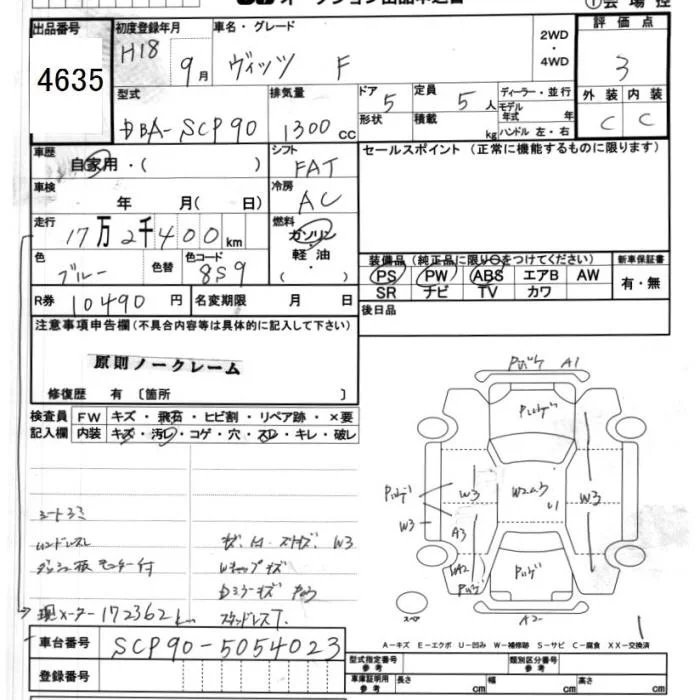 出品番号
4635
初度登録年月
H18
9月
車名・グレード
ヴィッツ F
2WD
・
4WD
評価点
3
外装 内装
C C
型式
DBA-SCP90
排気量
1300cc
ドア 5
形状
定員 5人
積載 kg
ディーラー・並行
モデル年式 年
ハンドル 左・右
車歴
自家用・( )
シフト
FAT
セールスポイント (正常に機能するものに限ります)
車検
年 月( 日)
冷房
AC
走行
17万2千400km
燃料
ガソリン
・
軽油
・
( )
色
ブルー
色替
色コード
8S9
装備品 (純正品に限り○をつけてください)
PS PW ABS エアB AW
SR ナビ TV カワ
新車保証書
有・無
R券 10490円
名変期限 月 日
後日品
注意事項申告欄(不具合内容等は具体的に記入して下さい)
原則ノークレーム
修復歴 有〔箇所 〕
検査員
記入欄
FW キズ・飛石・ヒビ割・リペア跡・×要
内装 キズ・汚レ・コゲ・穴・スレ・キレ・破レ
A1
W3
W3
W3
A3
WA2
A2
スペア
W3
現メーター172362k
スタッドレスT.
A-キズ E-エクボ U-凹み W-補修跡 S-サビ C-腐食 XX-交換済
車台番号 SCP90-5054023
登録番号
型式指定番号
参考
類別区分番号
参考
車庫証明用
参考
長さ cm
幅 cm
高さ cm